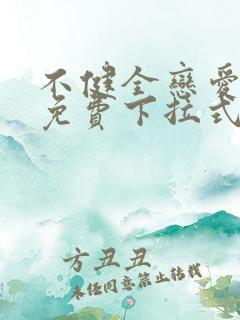 不健全戀愛
免費下拉式
方丑丑
未經同意禁止轉載